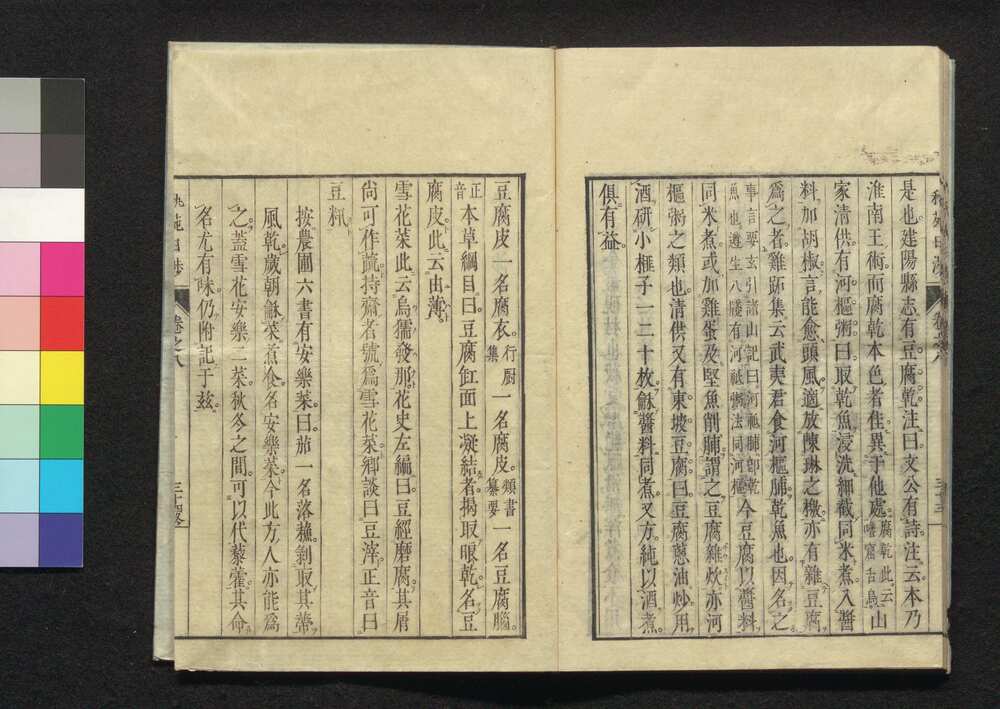 是也。建陽縣志有豆腐乾。注曰文公有詩。注云本乃
淮南王術。而腐乾本色者佳。異于他處。腐乾此云
山
家清供有河樞粥。曰。取乾魚浸洗。細截同米煮。入醬
料。加胡椒。言能愈頭風。適放陳琳之檄。亦有雜豆腐
爲之者。雞跖集云。武夷君食河樞脯。乾魚也。因名之
事言要玄引諸山記曰河祗脯卽乾
魚也遵生八牋有河祗粥法同河樞
今豆腐以醬料
同米煮。或加雞蛋及堅魚削脯。謂之豆腐雜炊。亦河
樞粥之類也。清供又有東坡豆腐。曰。豆腐蔥油炒。用
酒研小榧子一二十枚。龢醬料同煮。又方。純以酒煮。
俱有益。
豆腐皮一名腐衣。行厨
集
一名腐皮。類書
纂要
一名豆腐腦。
正
音
本草綱目曰。豆腐缸面上凝結者。揭取眼乾。名豆
腐皮。此云由薄。
雪花菜此云烏獦發那。花史左編曰。豆經磨腐。其屑
尚可作蔬。持齋者號爲雪花菜。鄉談曰豆滓。正音曰
豆粃。
按農圃六書有安樂菜。曰。茄一名落蘓。剝取其蒂
風乾。歲朝龢菜煮食。名安樂菜。今此方人亦能爲
之。蓋雪花安樂二菜。秋冬之間。可以代藜藿。其命
名尤有味。仍附記于茲。
卷之八